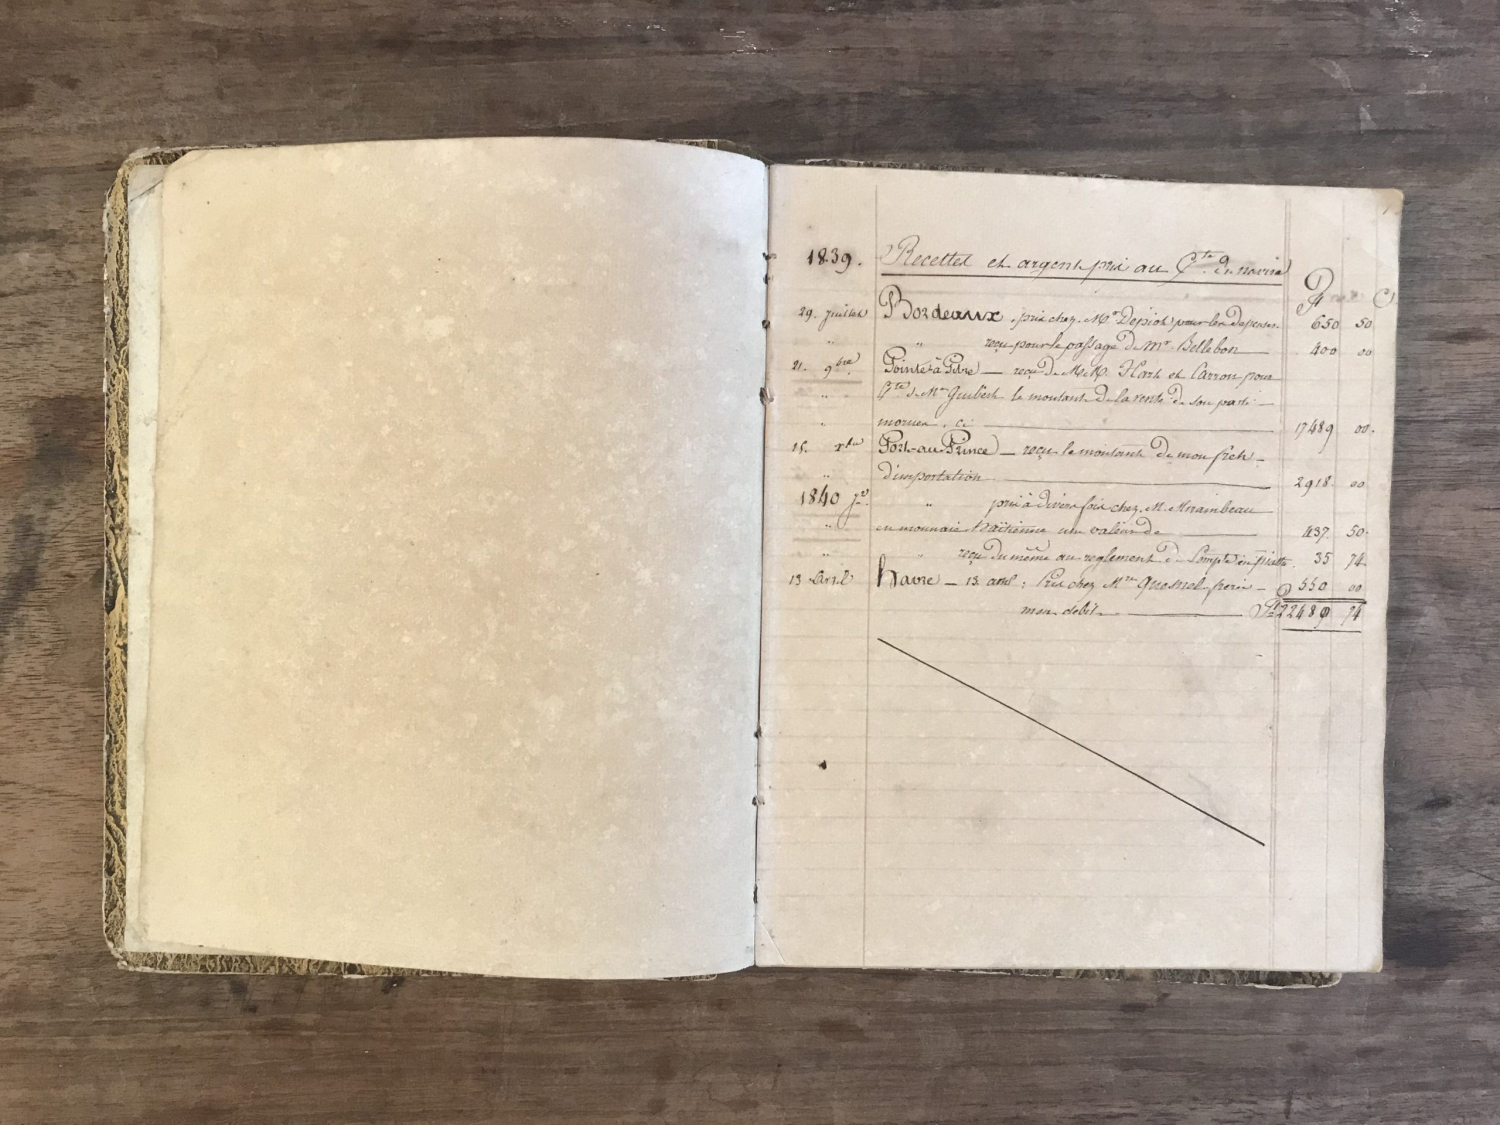 1839. Recettes et argent pris au Cte du navire
Pres C
29. Juillet Bordeaux pris chez Mr Depiot pour les dépenses 650 50
" " reçu pour le passage de Mr Bellebon 400 00
21. 9bre. Pointe à Pitre — reçu de M.M. Hart et Carron pour
" Cte de Mr Guibert le montant de la vente de son parti
" morues, ci 17489 00.
15. xbre Port-au-Prince — reçu le montant de mon frêt
" d'importation 2918 00
1840 Jer " pris à divers fois chez M. Mirambeau
" en monnaie haïtienne une valeur de 437. 50.
" " reçu du même au reglement de Compte en piastre. 35 74
13 Avril Havre — 13 avril : Pris chez Mrs Quesnel frères — 550 00
mon debit 22480 74